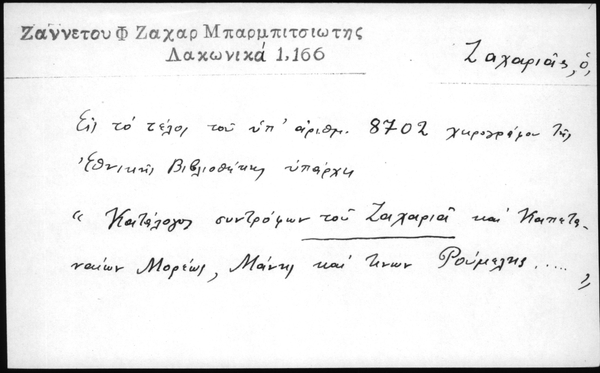 Ζαννετου Φ Ζαχαρ Μπαρμπιτσιωτης
Λακωνικά 1,166
Ζαχαριᾶς, ὁ,
Εἰς τό τέλος τοῦ ὑπ' ἀριθμ. 8702 χειρογράφου τῆς
Ἐθνικῆς Βιβλιοθήκης ὑπάρχει
“ Κατάλογος συντρόφων τοῦ Ζαχαριᾶ καί Καπετα-
ναίων Μορέως, Μάνης καί τινων Ρούμελης ..... „